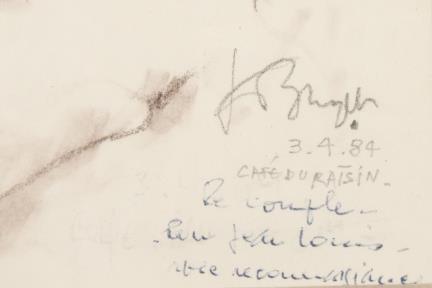 3.4.84
CAFÉ DU RAISIN.
Le couple -
Pour Jean Louis -
avec reconnaissance